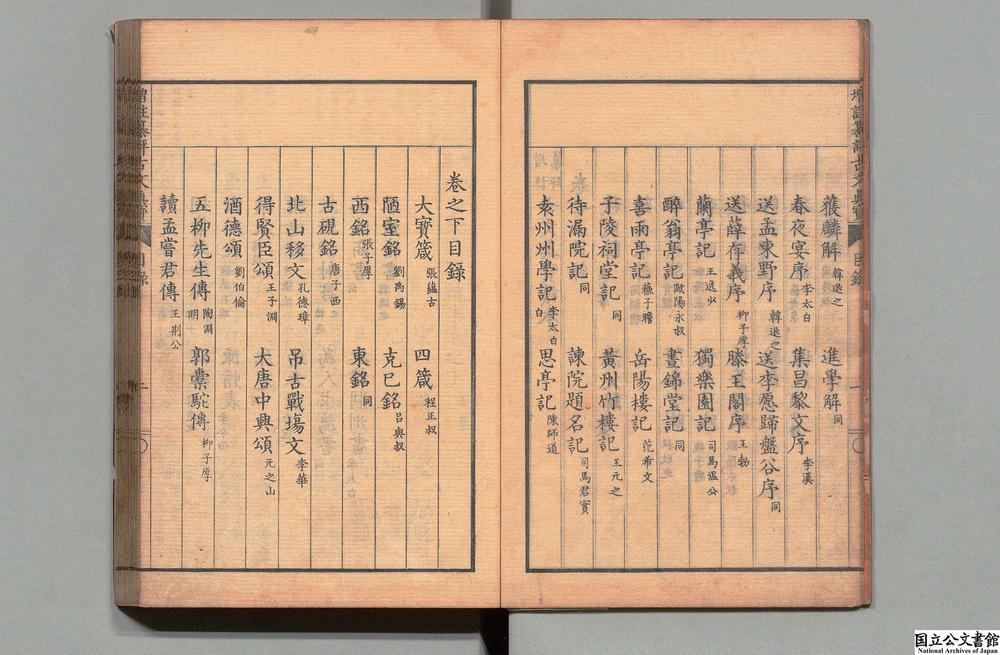 獲麟解 韓退之 進學解 同
春夜宴序 李太白 集昌黎文序 李漢
送孟東野序 韓退之 送李愿歸盤谷序 同
送薛存義序 柳子厚 滕王閣序 王勃
蘭亭記 王逸少 獨樂園記 司馬溫公
醉翁亭記 歐陽永叔 晝錦堂記 同
喜雨亭記 蘇子瞻 岳陽樓記 范希文
子陵祠堂記 同 黃州竹樓記 王元之
待漏院記 同 諫院題名記 司馬君實
袁州州學記 李太白 思亭記 陳師道
卷之下目錄
大寶箴 張蘊古 四箴 程正叔
陋室銘 劉禹錫 克己銘 呂與叔
西銘 張子厚 東銘 同
古硯銘 唐子西
北山移文 孔德璋 吊古戰塲文 李華
得賢臣頌 王子淵 大唐中興頌 元之山
酒德頌 劉伯倫
五柳先生傳 陶淵明 郭橐駝傳 柳子厚
讀孟嘗君傳 王荆公
目錄
一
目錄
二
国立公文書館
National Archives of Japan